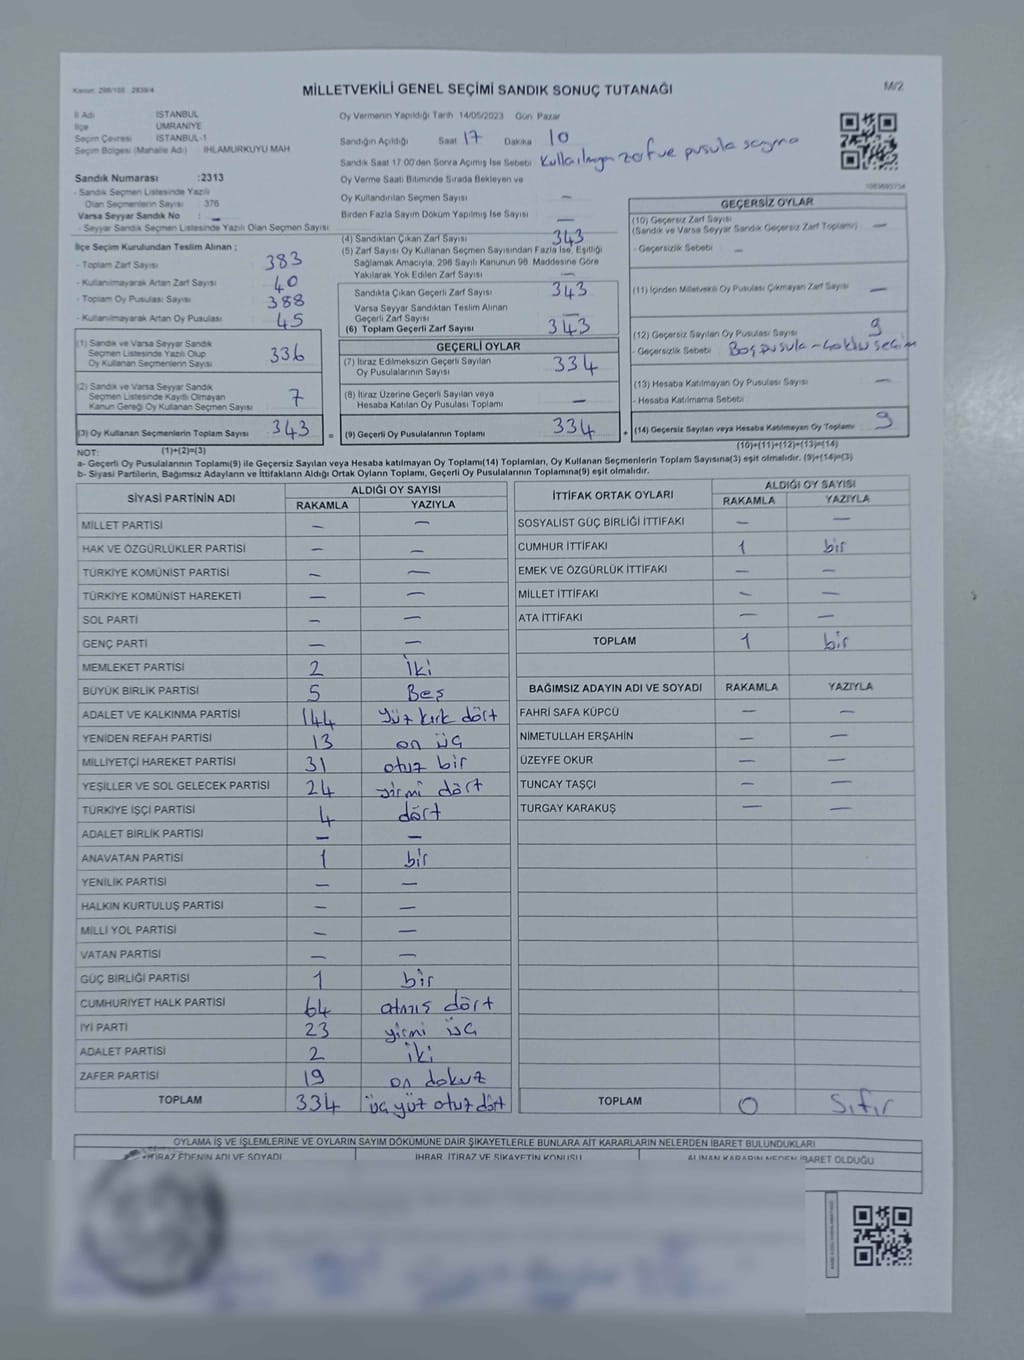 Kanun: 298/105 2839/4
MİLLETVEKİLİ GENEL SEÇİMİ SANDIK SONUÇ TUTANAĞI
M/2
İl Adı İSTANBUL
İlçe ÜMRANİYE
Seçim Çevresi İSTANBUL-1
Seçim Bölgesi (Mahalle Adı) IHLAMURKUYU MAH.
Oy Vermenin Yapıldığı Tarih 14/05/2023 Gün Pazar
Sandığın Açıldığı Saat 17 Dakika 10
Sandık Saat 17:00'den Sonra Açılmış İse Sebebi Kullanılmayan zarf ve pusula sayımı
Sandık Numarası :2313
- Sandık Seçmen Listesinde Yazılı
Olan Seçmenlerin Sayısı : 376
Varsa Seyyar Sandık No : –
- Seyyar Sandık Seçmen Listesinde Yazılı Olan Seçmen Sayısı
Oy Verme Saati Bitiminde Sırada Bekleyen ve
Oy Kullandırılan Seçmen Sayısı –
Birden Fazla Sayım Döküm Yapılmış İse Sayısı –
İlçe Seçim Kurulundan Teslim Alınan ;
- Toplam Zarf Sayısı 383
- Kullanılmayarak Artan Zarf Sayısı 40
- Toplam Oy Pusulası Sayısı 388
- Kullanılmayarak Artan Oy Pusulası 45
(1) Sandık ve Varsa Seyyar Sandık
Seçmen Listesinde Yazılı Olup
Oy Kullanan Seçmenlerin Sayısı 336
(2) Sandık ve Varsa Seyyar Sandık
Seçmen Listesinde Kayıtlı Olmayan
Kanun Gereği Oy Kullanan Seçmen Sayısı 7
(3) Oy Kullanan Seçmenlerin Toplam Sayısı 343
(1)+(2)=(3)
(4) Sandıktan Çıkan Zarf Sayısı 343
(5) Zarf Sayısı Oy Kullanan Seçmen Sayısından Fazla İse, Eşitliği
Sağlamak Amacıyla, 298 Sayılı Kanunun 98. Maddesine Göre
Yakılarak Yok Edilen Zarf Sayısı –
Sandıkta Çıkan Geçerli Zarf Sayısı 343
Varsa Seyyar Sandıktan Teslim Alınan
Geçerli Zarf Sayısı –
(6) Toplam Geçerli Zarf Sayısı 343
GEÇERLİ OYLAR
(7) İtiraz Edilmeksizin Geçerli Sayılan
Oy Pusulalarının Sayısı 334
(8) İtiraz Üzerine Geçerli Sayılan veya
Hesaba Katılan Oy Pusulası Toplamı –
= (9) Geçerli Oy Pusulalarının Toplamı 334 +
GEÇERSİZ OYLAR
(10) Geçersiz Zarf Sayısı
(Sandık ve Varsa Seyyar Sandık Geçersiz Zarf Toplamı) –
- Geçersizlik Sebebi –
(11) İçinden Milletvekili Oy Pusulası Çıkmayan Zarf Sayısı –
(12) Geçersiz Sayılan Oy Pusulası Sayısı 9
- Geçersizlik Sebebi Boş pusula - Çoklu seçim
(13) Hesaba Katılmayan Oy Pusulası Sayısı –
- Hesaba Katılmama Sebebi
(14) Geçersiz Sayılan veya Hesaba Katılmayan Oy Toplamı 9
(10)+(11)+(12)+(13)=(14)
NOT:
a- Geçerli Oy Pusulalarının Toplamı(9) ile Geçersiz Sayılan veya Hesaba katılmayan Oy Toplamı(14) Toplamları, Oy Kullanan Seçmenlerin Toplam Sayısına(3) eşit olmalıdır. (9)+(14)=(3)
b- Siyasi Partilerin, Bağımsız Adayların ve İttifakların Aldığı Oyların Toplamı, Geçerli Oy Pusulalarının Toplamına(9) eşit olmalıdır.
SİYASİ PARTİNİN ADI ALDIĞI OY SAYISI
RAKAMLA YAZIYLA
MİLLET PARTİSİ – –
HAK VE ÖZGÜRLÜKLER PARTİSİ – –
TÜRKİYE KOMÜNİST PARTİSİ – –
TÜRKİYE KOMÜNİST HAREKETİ – –
SOL PARTİ – –
GENÇ PARTİ – –
MEMLEKET PARTİSİ 2 iki
BÜYÜK BİRLİK PARTİSİ 5 Beş
ADALET VE KALKINMA PARTİSİ 144 yüz kırk dört
YENİDEN REFAH PARTİSİ 13 on üç
MİLLİYETÇİ HAREKET PARTİSİ 31 otuz bir
YEŞİLLER VE SOL GELECEK PARTİSİ 24 yirmi dört
TÜRKİYE İŞÇİ PARTİSİ 4 dört
ADALET BİRLİK PARTİSİ – –
ANAVATAN PARTİSİ 1 bir
YENİLİK PARTİSİ – –
HALKIN KURTULUŞ PARTİSİ – –
MİLLİ YOL PARTİSİ – –
VATAN PARTİSİ – –
GÜÇ BİRLİĞİ PARTİSİ 1 bir
CUMHURİYET HALK PARTİSİ 64 atmış dört
İYİ PARTİ 23 yirmi üç
ADALET PARTİSİ 2 iki
ZAFER PARTİSİ 19 on dokuz
TOPLAM 334 üç yüz otuz dört
İTTİFAK ORTAK OYLARI ALDIĞI OY SAYISI
RAKAMLA YAZIYLA
SOSYALİST GÜÇ BİRLİĞİ İTTİFAKI – –
CUMHUR İTTİFAKI 1 bir
EMEK VE ÖZGÜRLÜK İTTİFAKI – –
MİLLET İTTİFAKI – –
ATA İTTİFAKI – –
TOPLAM 1 bir
BAĞIMSIZ ADAYIN ADI VE SOYADI RAKAMLA YAZIYLA
FAHRİ SAFA KÜPCÜ – –
NİMETULLAH ERŞAHİN – –
ÜZEYFE OKUR – –
TUNCAY TAŞÇI – –
TURGAY KARAKUŞ – –
TOPLAM 0 Sıfır
OYLAMA İŞ VE İŞLEMLERİNE VE OYLARIN SAYIM DÖKÜMÜNE DAİR ŞİKAYETLERLE BUNLARA AİT KARARLARIN NELERDEN İBARET BULUNDUKLARI
İTİRAZ EDENİN ADI VE SOYADI İHBAR, İTİRAZ VE ŞİKAYETİN KONUSU ALINAN KARARIN NEDEN İBARET OLDUĞU